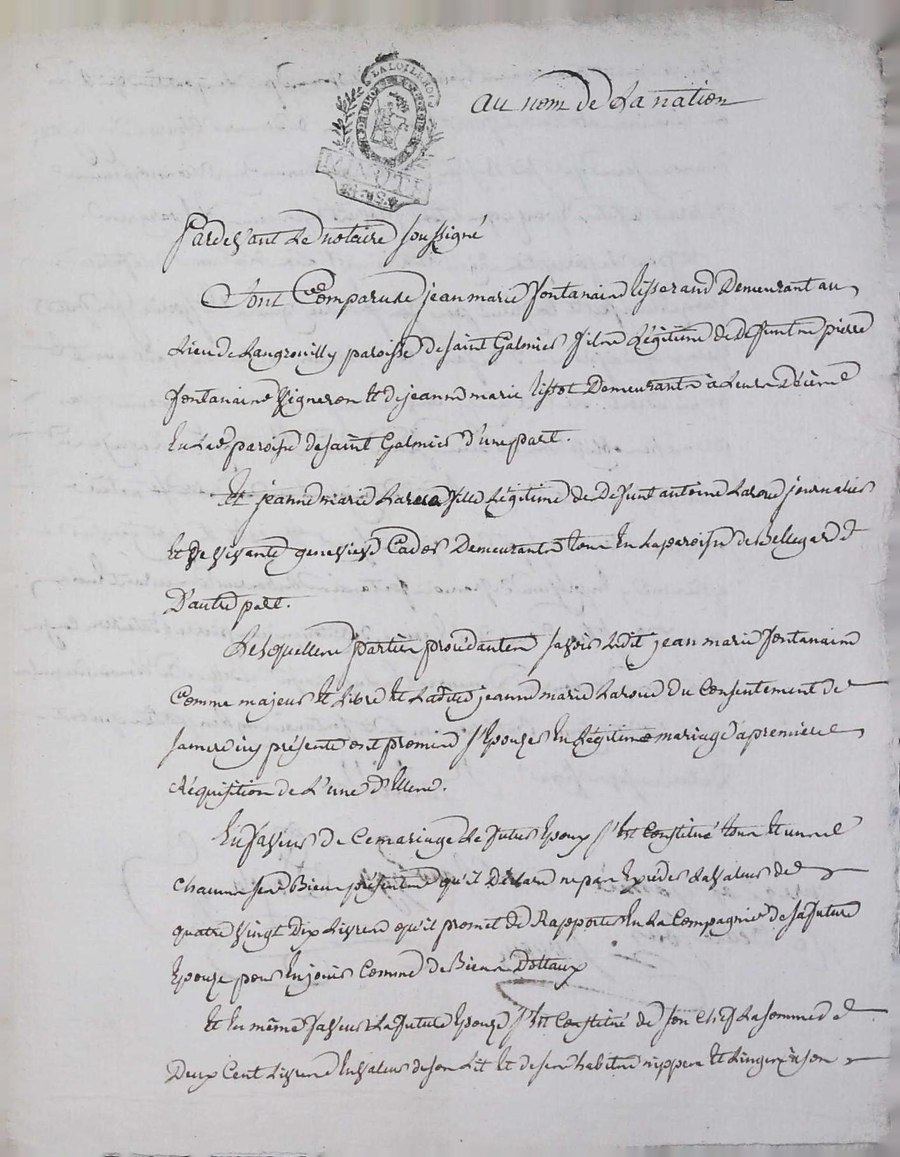 LA LOI LE ROI
au nom de La nation
Pardevant Le notaire soussigné
Sont Comparus jean marie fontanain tisserand Demeurant au
Lieu de Langrouilly paroisse de saint Galmier fils Légitime de Deffunt pierre
fontanain Vigneron et de jeanne marie tissot Demeurants à Leur Décime
En Lad. paroisse de saint Galmier d'une part.
Et jeanne marie Laroue fille Légitime de Defunt antoine Laroue journalier
Et de vivante genevieve Cador Demeurants tous En La paroisse de Bellegarde
D'autre part.
Lesquelles parties procédantes savoir Ledit jean marie fontanain
Comme majeur et Libre et Ladite jeanne marie Laroue du Consentement de
sa mere icy présente ont promis s'Epouser En Légitime mariage à première
Réquisition de L'une d'Elles.
En faveur de Ce mariage Le futur Epoux s'Est Constitué tous et uns
Chacuns ses Biens présents qu'il Déclare ne pas Exceder La valeur de
quatre Vingt Dix Livres qu'il promet de Rapporter En La Compagnie de sa future
Epouze pour En jouir Comme de Biens Dottaux
Et En même faveur La future Epouze s'Est Constitué de son Chef La somme de
Deux Cent Livres En valeur de son Lit Et de ses habits nippes Et Linges à son